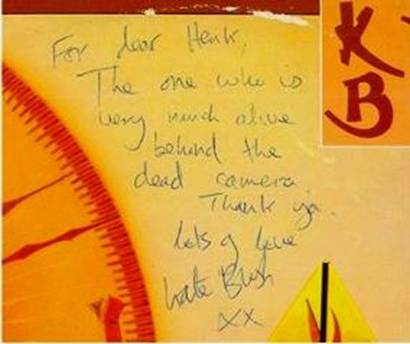 For dear Henk,
The one who is
very much alive
behind the
dead camera.
Thank ya.
lots of love
Kate Bush
xx
K
B